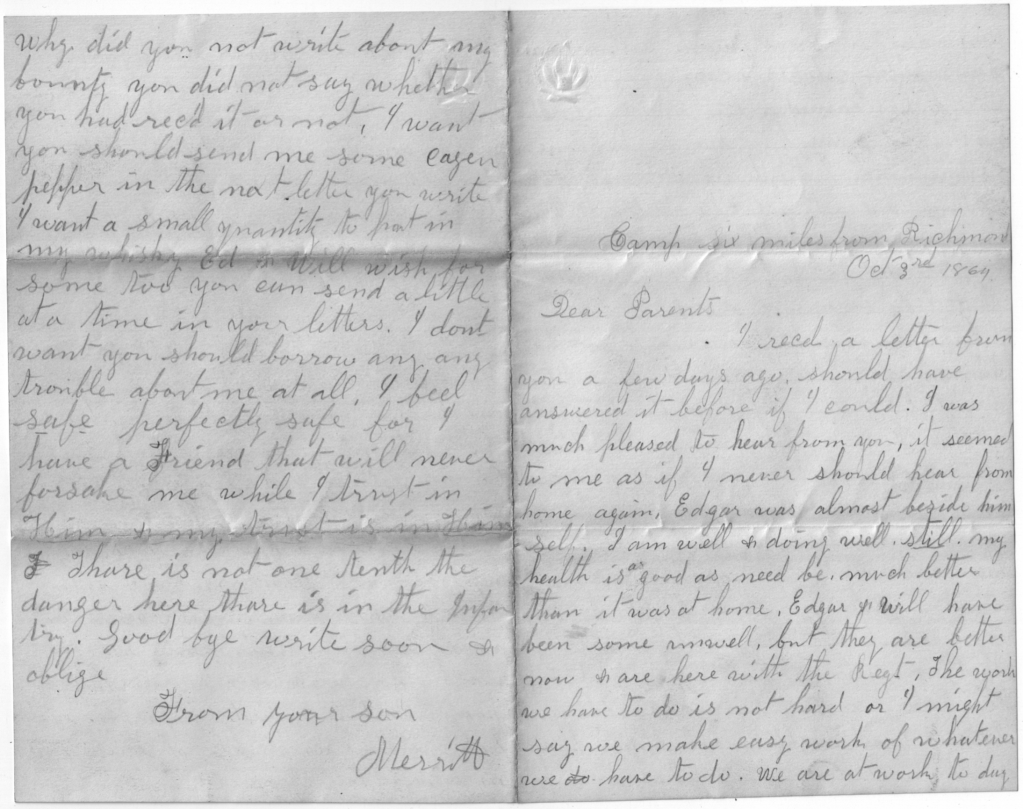 Camp six miles from Richmond
Oct 3rd 1864
Dear Parents
I recd a letter from
you a few days ago. should have
answered it before if I could. I was
much pleased to hear from you, it seemed
to me as if I never should hear from
home again, Edgar was almost beside him
self. I am well & doing well still. my
health is as good as need be. much better
than it was at home. Edgar & Will have
been some unwell, but they are better
now & are here with the Regt, The work
we have to do is not hard or I might
say we make easy work of whatever
we do have to do. We are at work to day
why did you not write about my
bounty you did not say whether
you had recd it or not, I want
you should send me some cayen
pepper in the next letter you write
I want a small quantity to put in
my whisky Ed & Will wish for
some too you can send a little
at a time in your letters. I dont
want you should borrow any any
trouble about me at all, I feel
safe perfectly safe for I
have a Friend that will never
forsake me while I trust in
Him & my trust is in Him
I Thare is not one tenth the
danger here thare is in the Infan
try. Good bye write soon &
oblige
From your son
Merritt